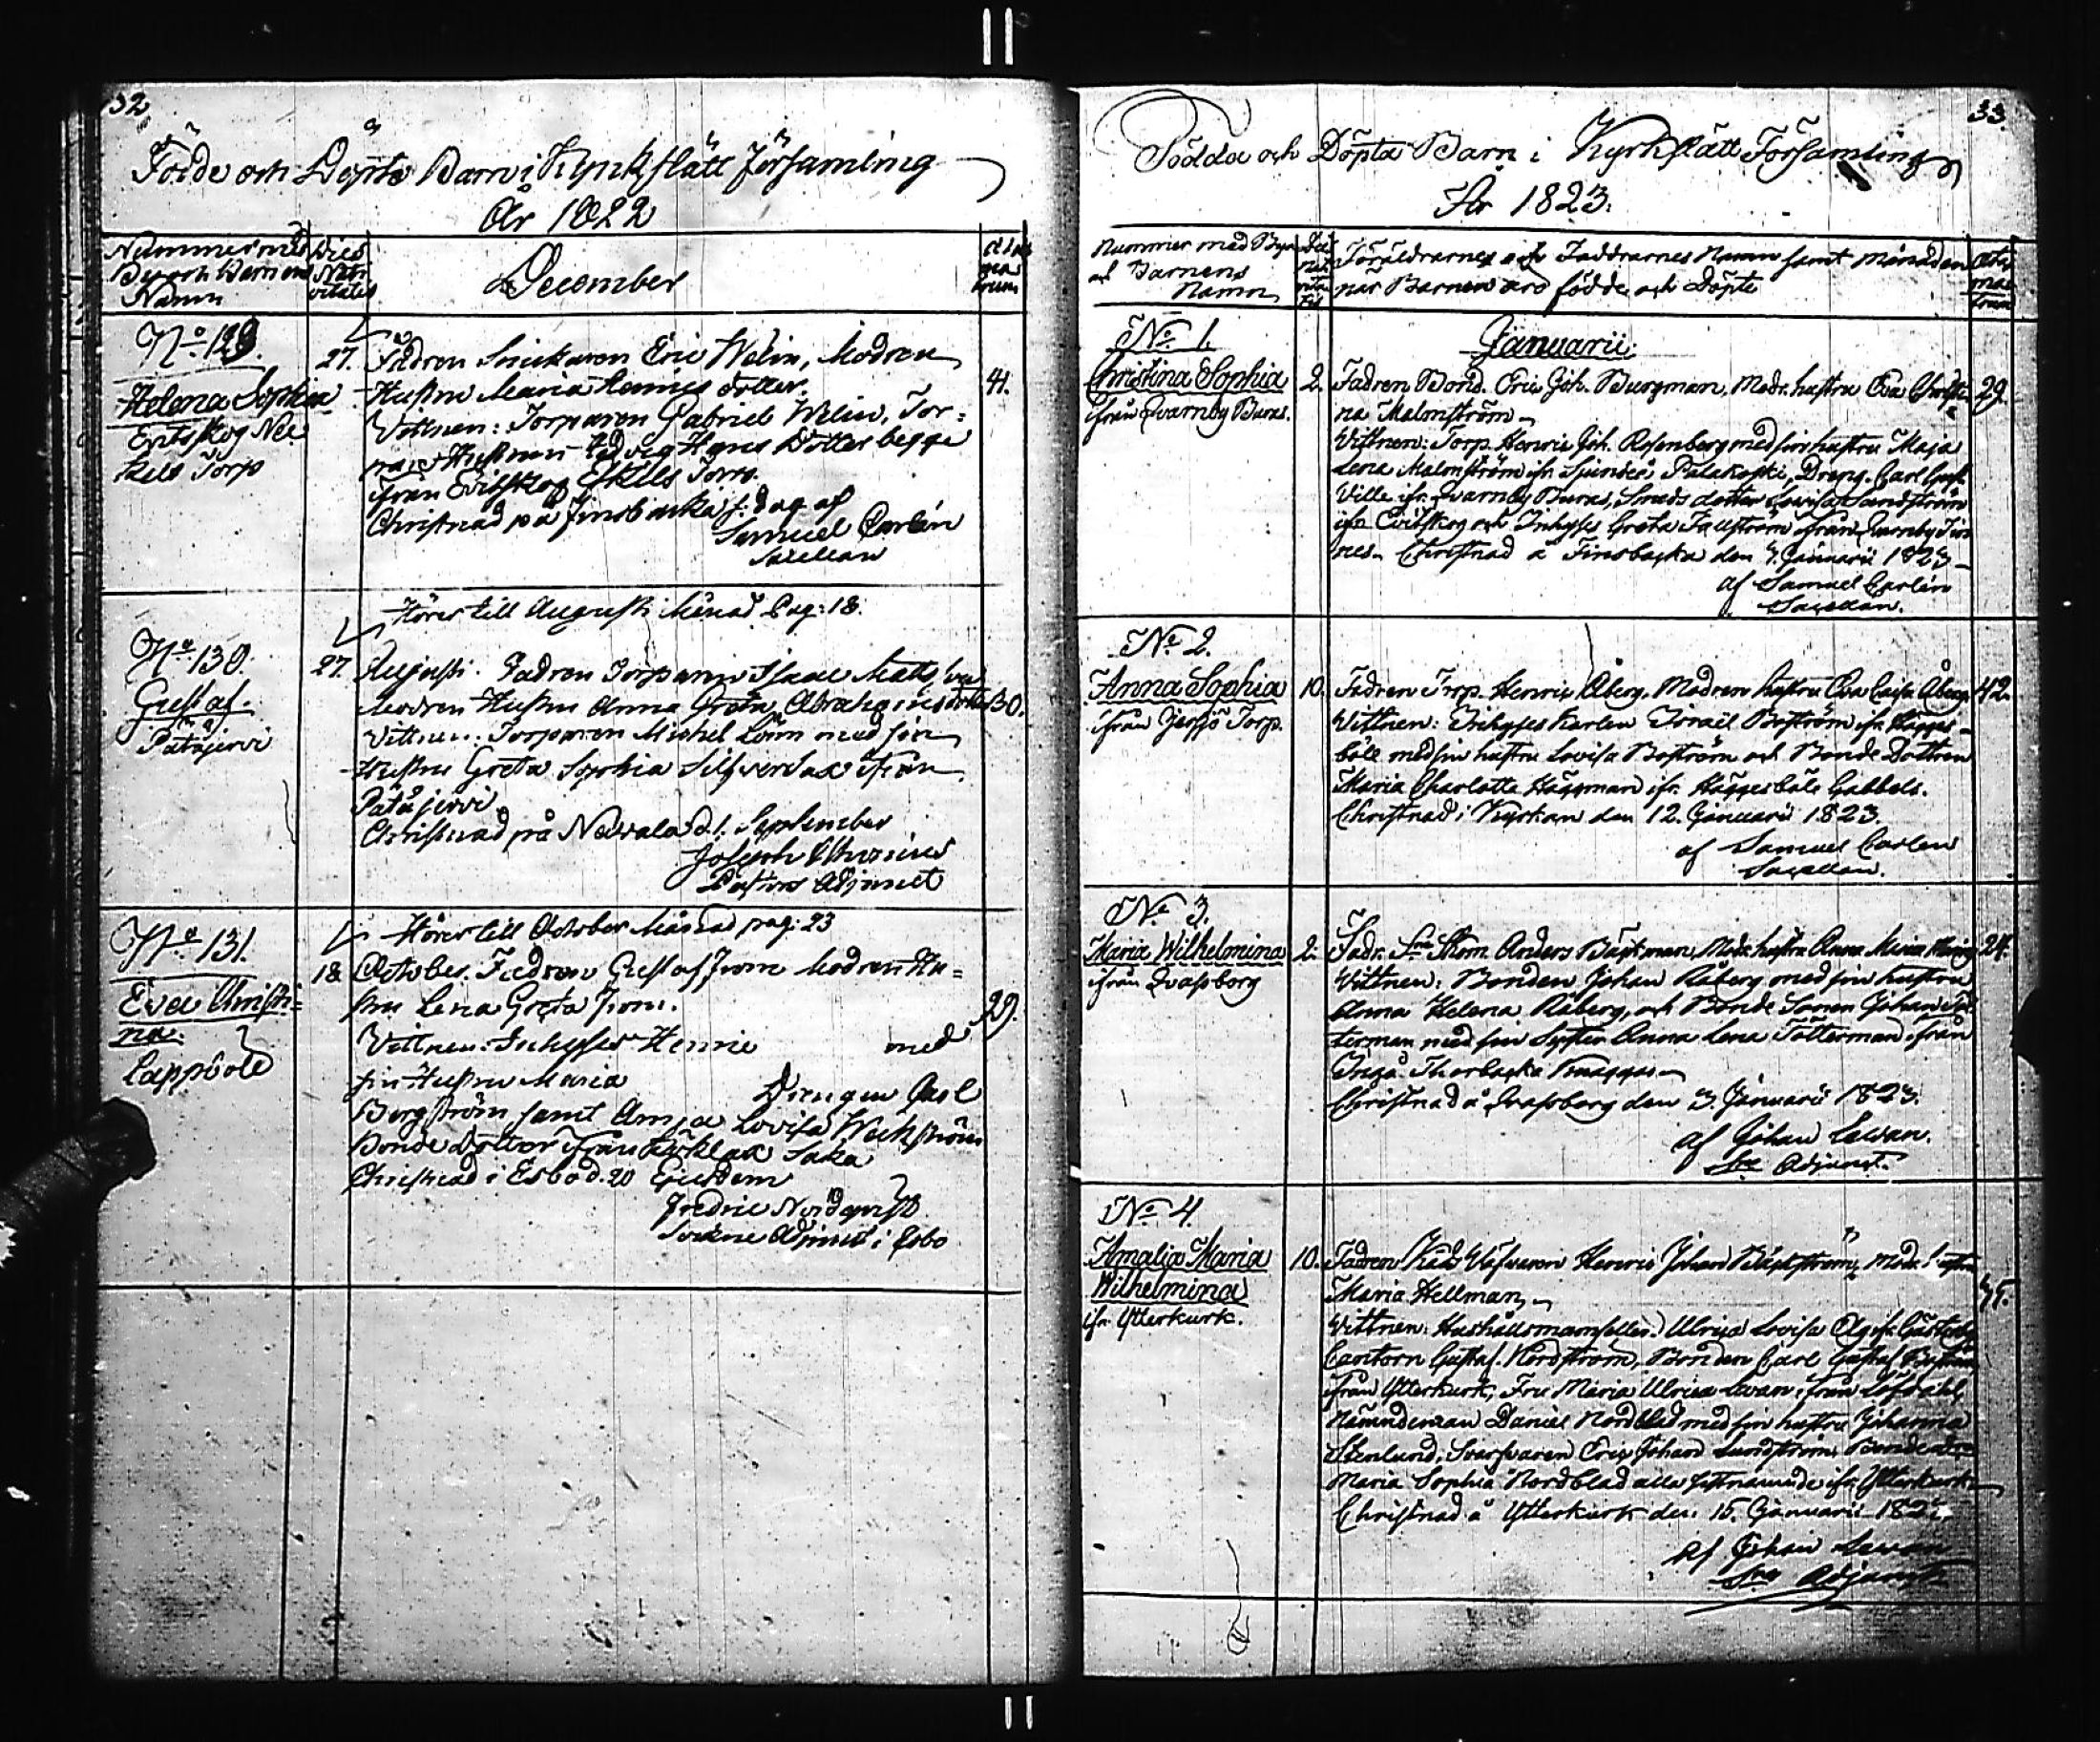 32
Födde och Döpte Barn i Kyrkslätt Församling
År 1822
Nummer med
By och Barnens
Namn
Dies
Nati
vitatis
December
N:o 129.
Helena Sophia
Evitskog
kels Torp
27.
Fadren Snickaren Eric Welin, Modren
Hustru Maria Henrics dotter.
Vittnen: Torparen Gabriel Welin, Tor=
Hustrun Hedvig Hans Dotter begge
ifrån Evitskog Eskils Torp.
Christnad på Finsbacka s. dag af
Samuel Carlén
Sacellan
41.
Hörer till Augusti Månad Pag: 18.
N:o 130.
Gustaf.
Patajervi
27.
Augusti. Fadren Torparen Isaac Mats
Modren Hustru Anna Greta Abrahams dotter
30.
Vittnen: Torparen Michel Lönn med sin
Hustru Greta Sophia Silfversax ifrån
Patajervi
Christnad på Navala d. 1. September
Joseph
Pastors Adjunct
Hörer till October Månad pag: 23
N:o 131.
Eva Christi=
na.
Lappböle
18
October. Fadren Gustaf From Modren Hu=
stru Lena Greta From.
29.
Vittnen: Inhyses Henric med
sin Hustru Maria Drengen Carl
Bergström samt Anna Lovisa Weckström
Bonde Dotter ifrån Köklax Saka
Christnad i Esbo d. 20 Ejusdem
Fredric Nordqvist
Sockne Adjunct i Esbo
33.
Födda och Döpta Barn i Kyrkslätt Församling
År 1823.
Nummer med Byn
och Barnens
Namn
Föräldrarnes och Faddrarnes Namn samt månaden
när Barnen äro födde och Döpte
Januarii
N:o 1.
Christina Sophia
ifrån Qvarnby Buras.
2.
Fadren Bond. Eric Joh. Burgman, Modr. hustru Eva Christi
29.
na Malmström
Vittnen: Torp. Henric Joh. Rosenberg med sin hustru Maja
Lena Malmström ifr. Sjundeå Palakoski, Dreng. Carl Gust.
Ville ifr. Qvarnby Buras, Smeds dotter Lovisa Sandström
ifr. Evitskog och Inhyses Greta Fallström ifrån Qvarnby Fin
nes. Christnad å Finsbacka den 7. Januarii 1823
af Samuel Carlén
Sacellan.
N:o 2.
Anna Sophia
ifrån Jerfsö Torp.
10.
Fadren Torp. Henric Åberg, Modren hustru Eva Caisa Åberg.
42.
Vittnen: Inhyses Karlen Israël Boström ifr. Hägges=
böle med sin hustru Lovisa Boström och Bonde Dottren
Maria Charlotta Häggman ifr. Häggesböle Gabbels.
Christnad i Kyrkan den 12. Januarii 1823.
af Samuel Carlén
Sacellan.
N:o 3.
Maria Wilhelmina
ifrån Qvafsborg
2.
Fadr. Anders Bäckman, Modr. hustru Anna Maria
24.
Vittnen: Bonden Johan Råberg med sin hustru
Anna Helena Råberg, och Bonde Sonen Johan Töt
terman med sin Syster Anna Lena Tötterman ifrån
Ingå Thorbacka Knaggas
Christnad å Qvafsberg den 3. Januarii 1823.
af Johan Levan.
Adjunct.
N:o 4.
Amalia Maria
Wilhelmina
ifr. Ytterkurk.
10.
Fadren Klädsväfvaren Henric Johan Bäckström, Modr. hustru
Maria Hellman
Vittnen: Hushållsmamsellen Ulrica Lovisa
Cantorn Gustaf Nordström, Bonden Carl Gustaf
ifrån Ytterkurk, Fru Maria Ulrica Levan ifrån Löfdahl,
Nämndeman Daniel Nordblad med sin hustru Johanna
Stenlund, Svarfvaren Eric Johan Lundström,
Maria Sophia Nordblad alla sistnämnde ifr. Ytterkurk
Christnad å Ytterkurk den 15. Januarii 1823.
af Johan Levan
Adjunct